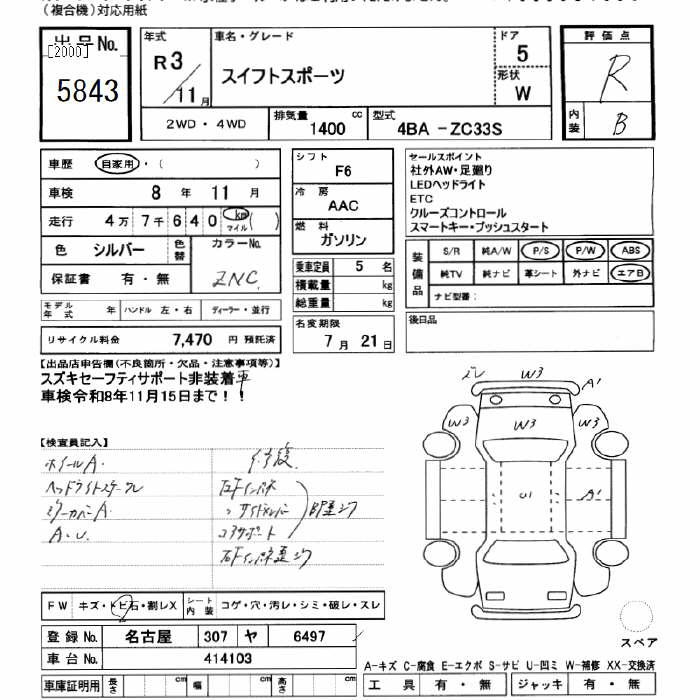 (複合機)対応用紙
出品No.
[2000]
5843
年式
R3/11月
車名・グレード
スイフトスポーツ
ドア
5
形状
W
評価点
R
内装
B
2WD・4WD
排気量
1400 cc
型式
4BA -ZC33S
車歴 自家用・( )
車検 8年11月
走行 4万7千640 km マイル( )
色 シルバー 色替 カラーNo.
ZNC
保証書 有・無
モデル年式 年 ハンドル 左・右 ディーラー・並行
リサイクル料金 7,470 円 預託済
シフト
F6
冷房
AAC
燃料
ガソリン
乗車定員 5 名
積載量 kg
総重量 kg
名変期限
7月21日
セールスポイント
社外AW・足廻り
LEDヘッドライト
ETC
クルーズコントロール
スマートキー・プッシュスタート
装備品
S/R 純A/W P/S P/W ABS
純TV 純ナビ 革シート 外ナビ エアB
ナビ型番:
後日品
【出品店申告欄(不良箇所・欠品・注意事項等)】
スズキセーフティサポート非装着車
車検令和8年11月15日まで！！
【検査員記入】
ホイールA.
A.U.
修復
W3
A'
W3
W3
W3
U1
A'
FW キズ・トビ石・割レX シート内装 コゲ・穴・汚レ・シミ・破レ・スレ
登録No. 名古屋 307 ヤ 6497
車台No. 414103
車庫証明用 長さ cm 幅 cm 高さ cm
スペア
A-キズ C-腐食 E-エクボ S-サビ U-凹ミ W-補修 XX-交換済
工具 有・無 ジャッキ 有・無